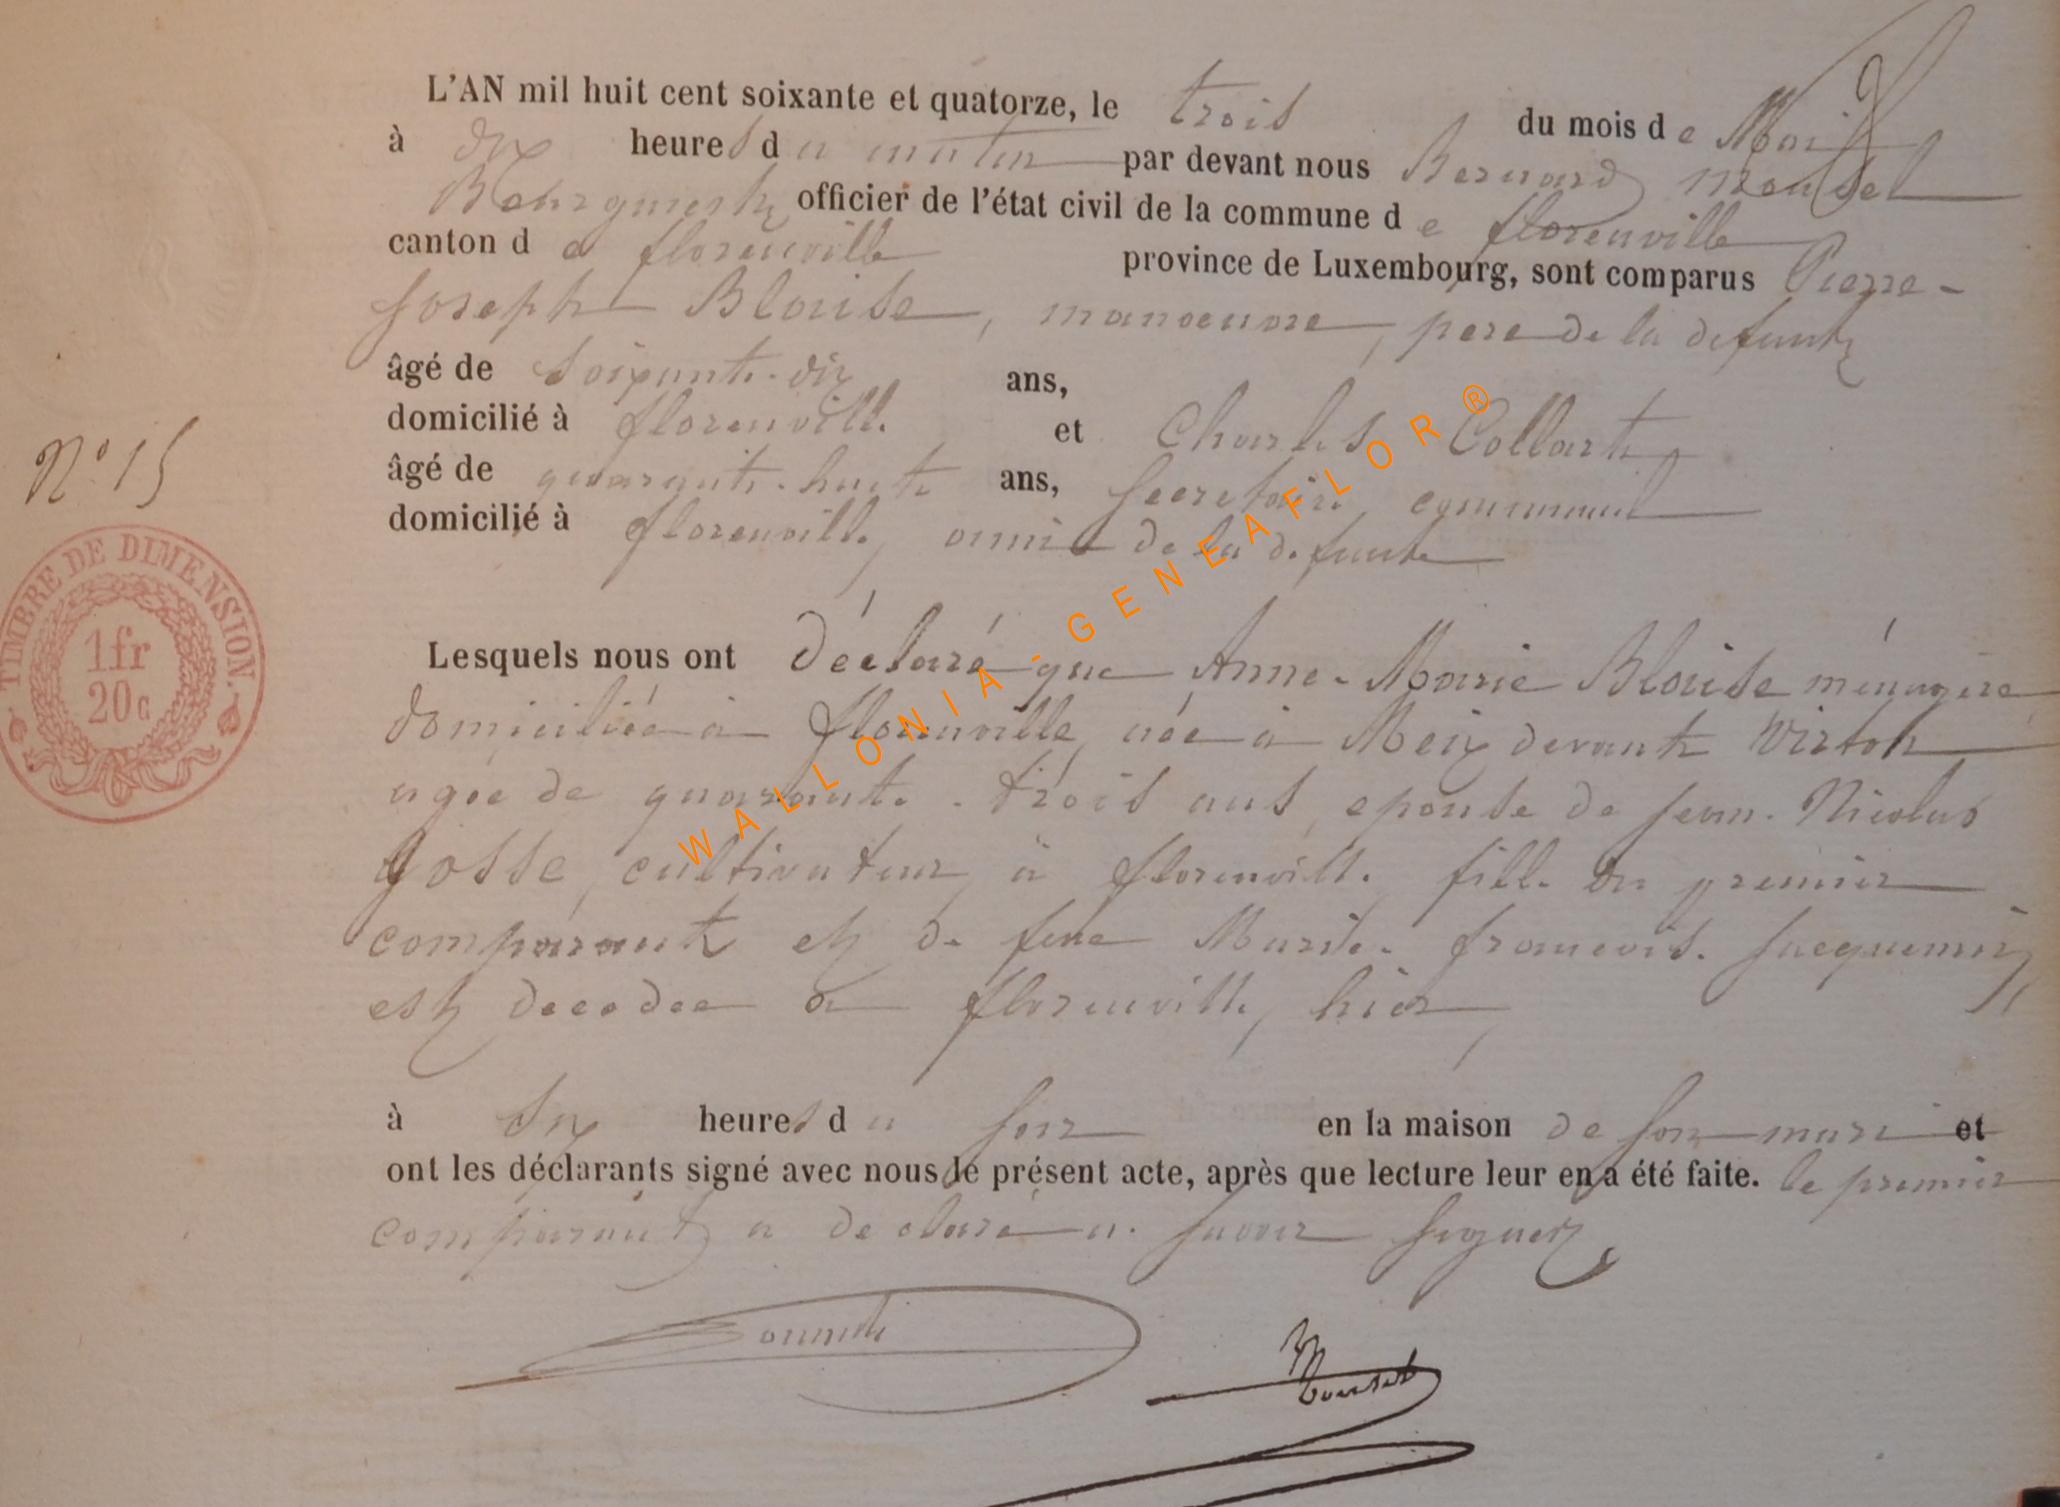 L'AN mil huit cent soixante et quatorze, le trois du mois de Mai
à dix heures du matin par devant nous Bernard Mousel
Bourgmestre officier de l'état civil de la commune de florenville
canton de florenville province de Luxembourg, sont comparus Pierre-
Joseph Blaise, manoeuvre, pere de la defunte
âgé de soixante-dix ans,
domicilié à florenville et Charles Collart
âgé de quarante-huit ans, secretaire communal
domicilié à florenville, ami de la defunte
N° 15
TIMBRE DE DIMENSION.
1 fr
20 c
Lesquels nous ont déclaré que Anne-Marie Blaise ménagère
domiciliée à florenville, née à Meix devant Virton
agée de quarante-trois ans, epouse de Jean-Nicolas
Gosse, cultivateur, à florenville fille du premier
comparant et de feue Marie-francoise Jacquemin,
est decedee a florenville, hier,
à six heures du soir en la maison de son mari et
ont les déclarants signé avec nous le présent acte, après que lecture leur en a été faite. le premier
comparant a declaré ne savoir signer,
Mousel
WALLONIA-GENEAFLOR®